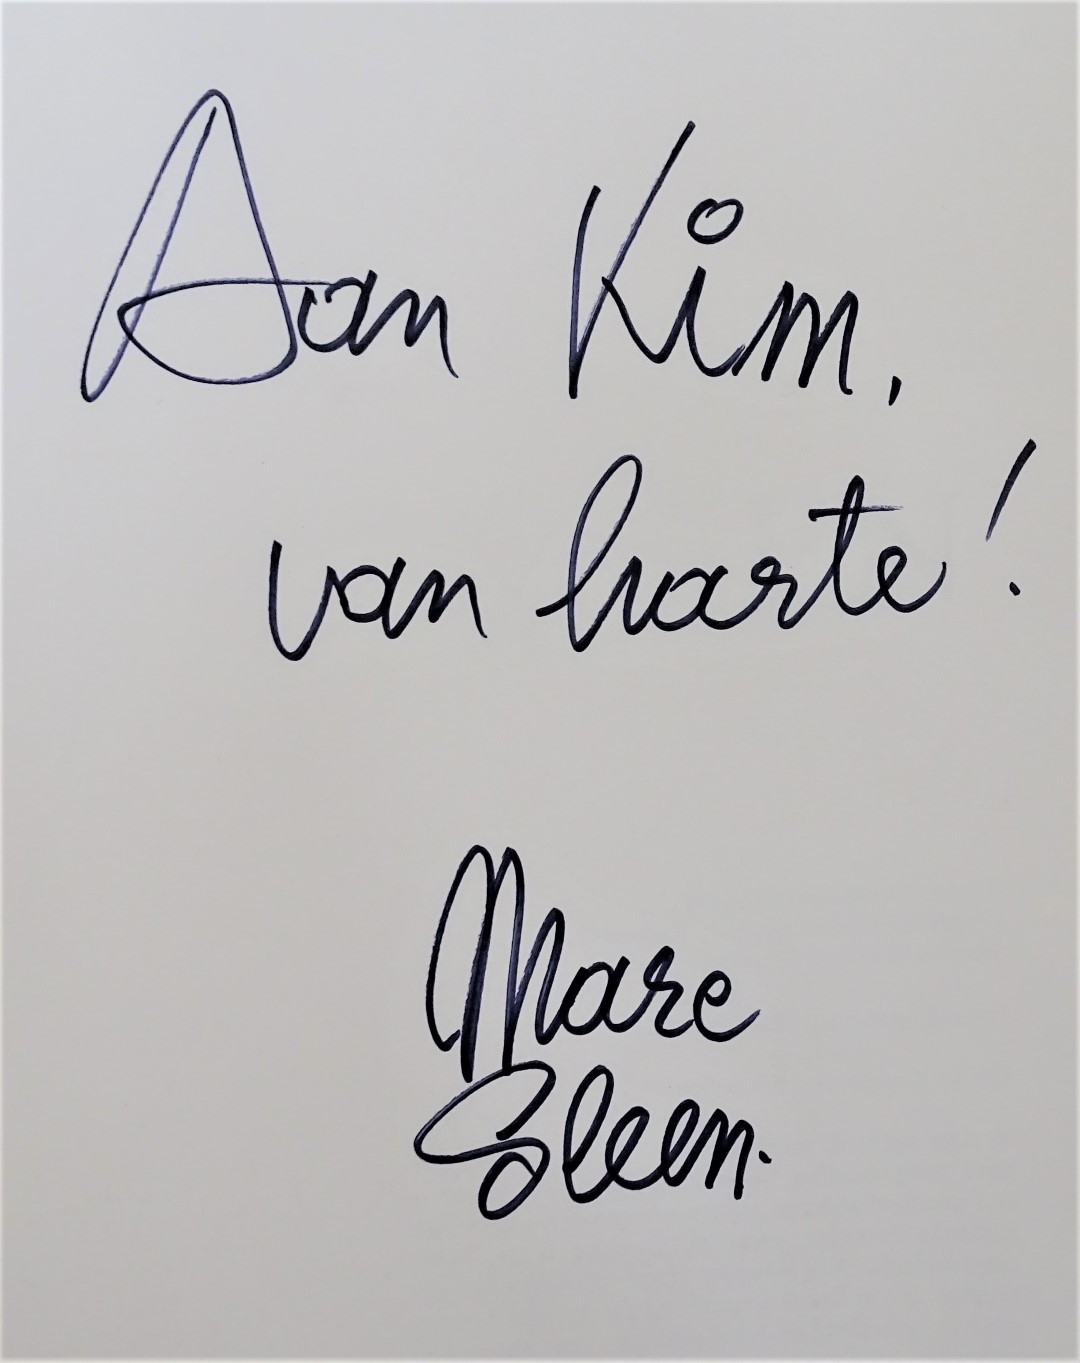 Aan Kim,
van harte!
Marc
Sleen.